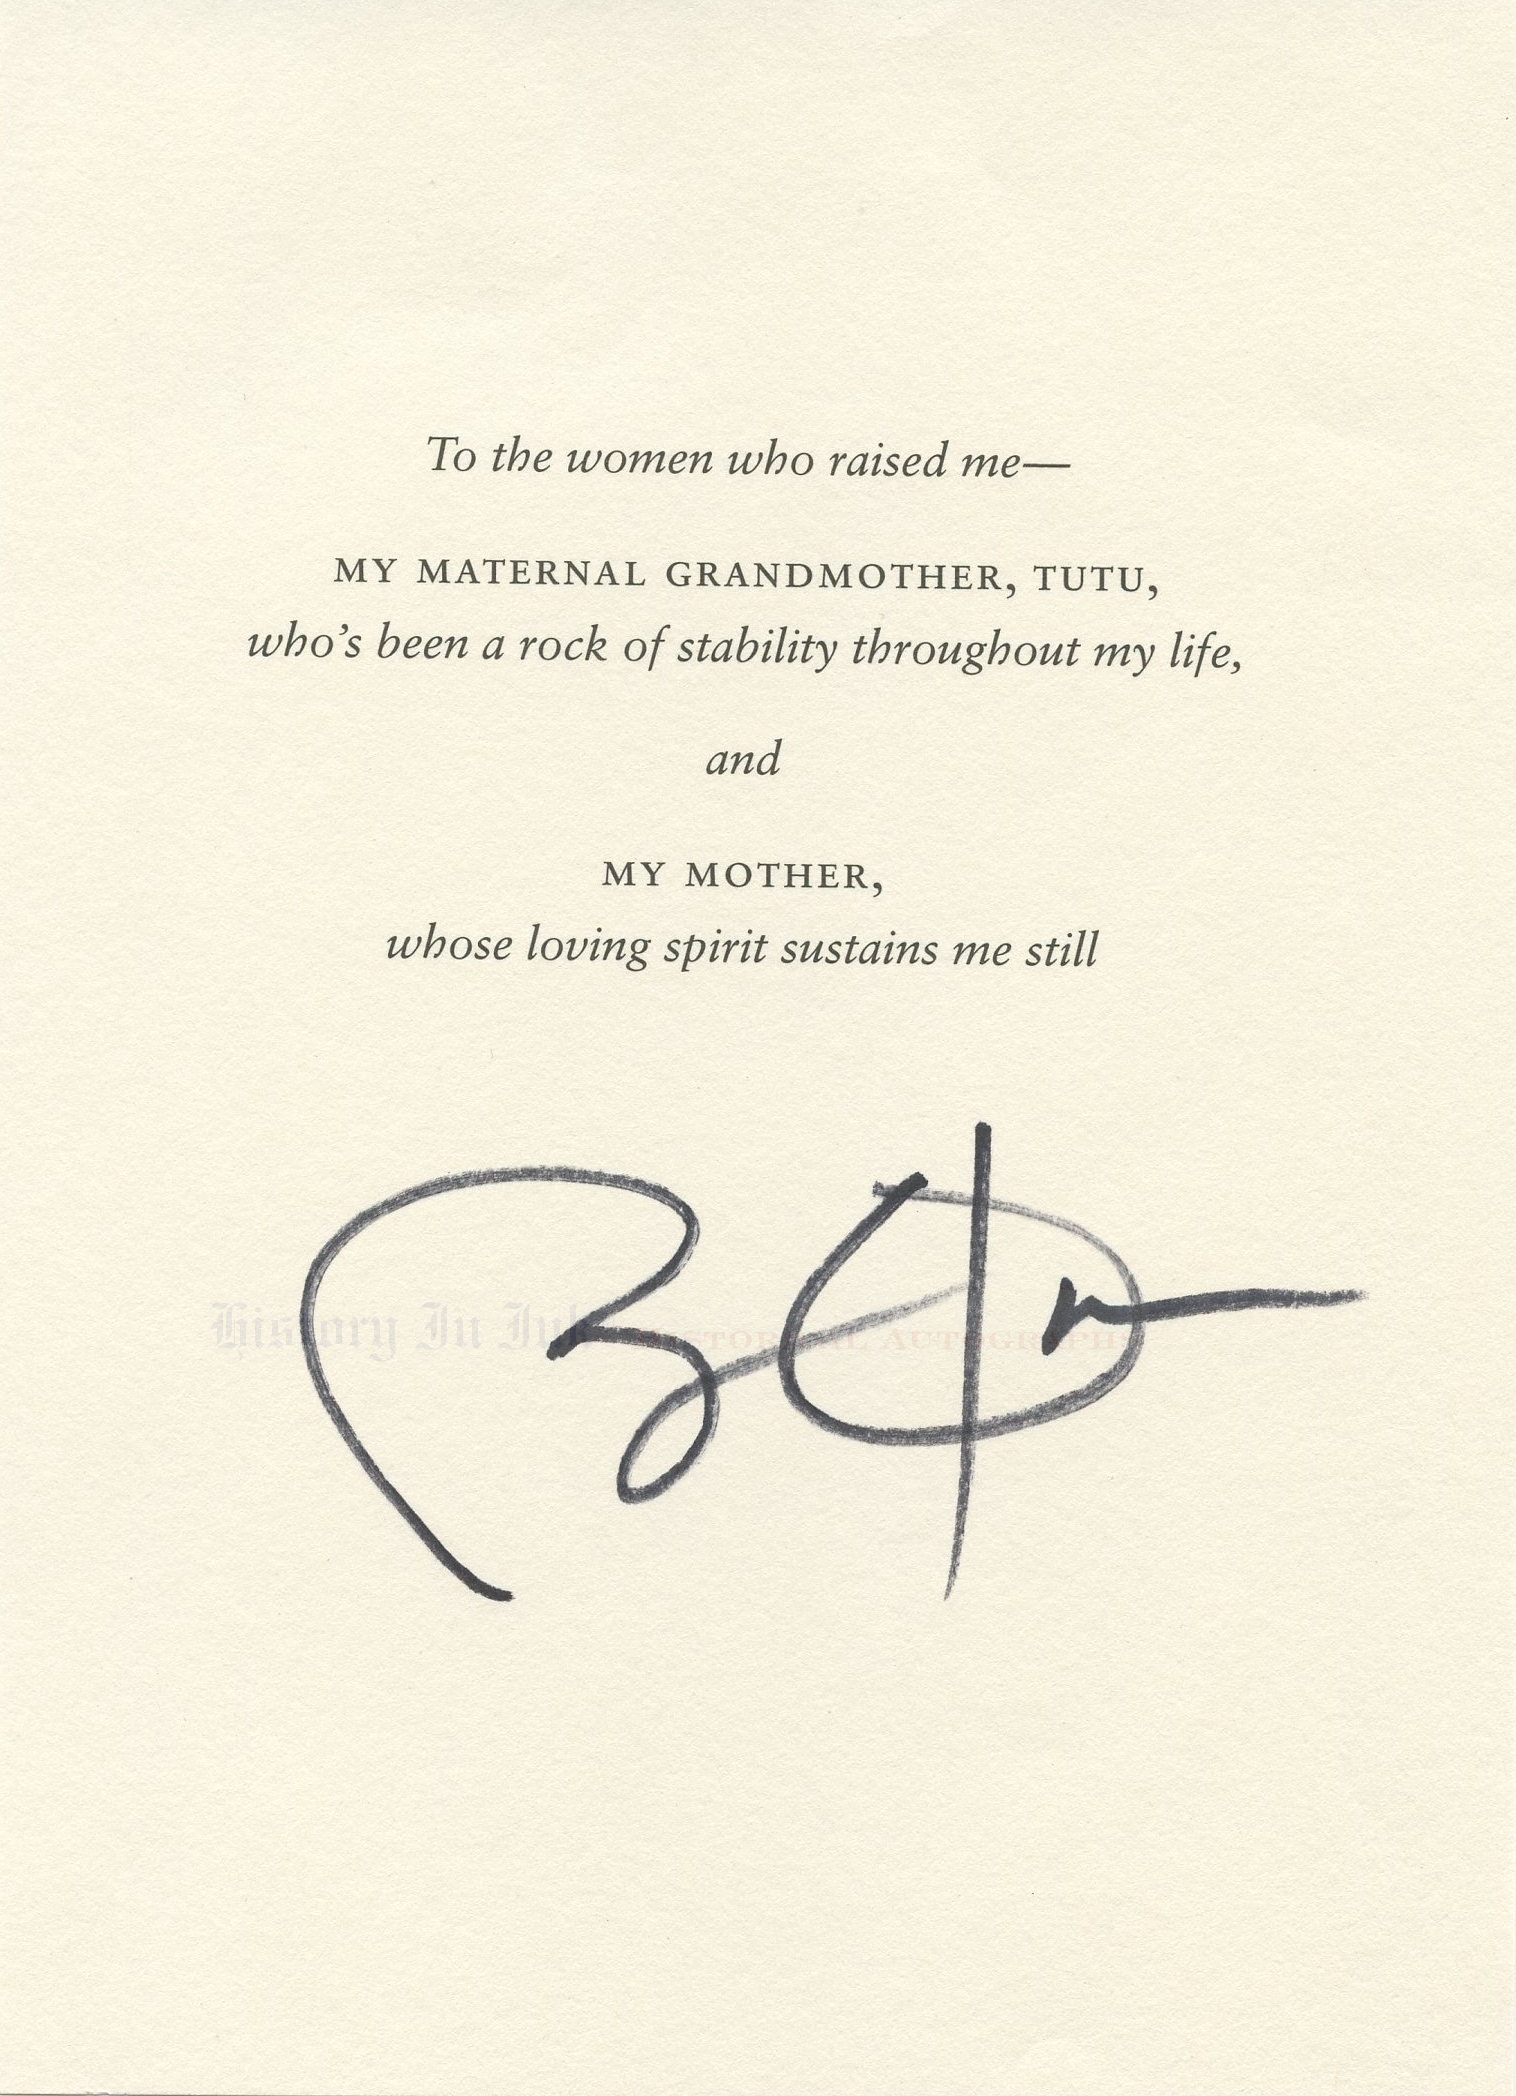 To the women who raised me—
MY MATERNAL GRANDMOTHER, TUTU,
who's been a rock of stability throughout my life,
and
MY MOTHER,
whose loving spirit sustains me still
History In Ink Historical Autographs